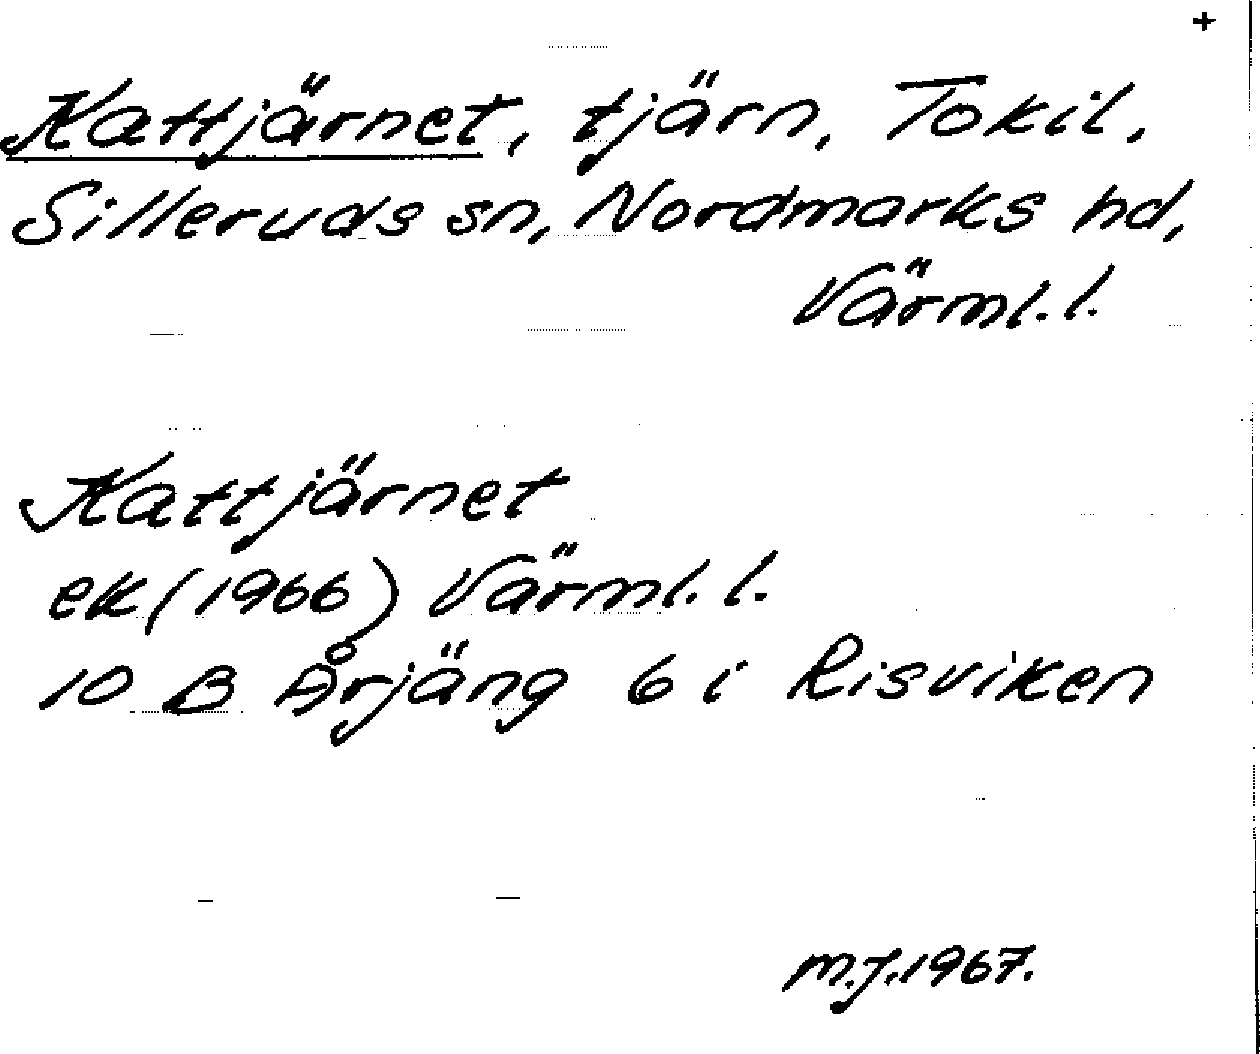 +
Kattjärnet, tjärn, Tokil,
Silleruds sn, Nordmarks hd,
Värml. l.
Kattjärnet
ek (1966) Värml. l.
10 B Årjäng 6 i Risviken
M.J. 1967.